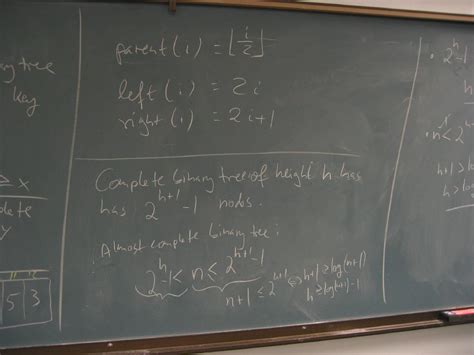 nary tree
key
≥ x
plete
y
5 3
parent(i) = ⌊i/2⌋
left(i) = 2i
right(i) = 2i+1
Complete binary tree of height h has
has 2^{h+1} - 1 nodes.
Almost complete binary tree:
2^h - 1 < n ≤ 2^{h+1} - 1
n+1 ≤ 2^{h+1} ⇔ h+1 ≥ log(n+1)
h ≥ log(n+1) - 1
• 2^h - 1
• n < 2^h
h+1 >
h >